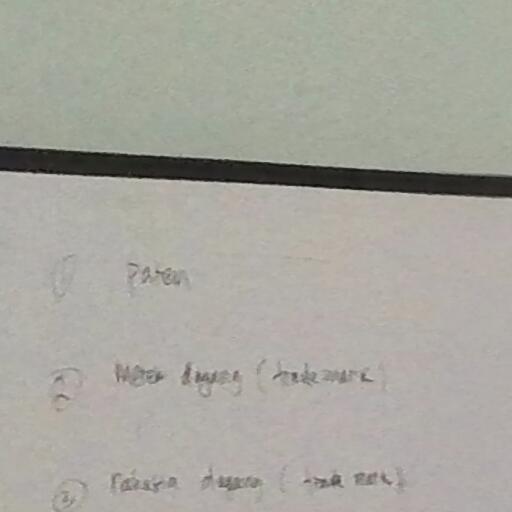 ① Paten
② Merek dagang (trade mark)
③ Rahasia dagang (trade mark)